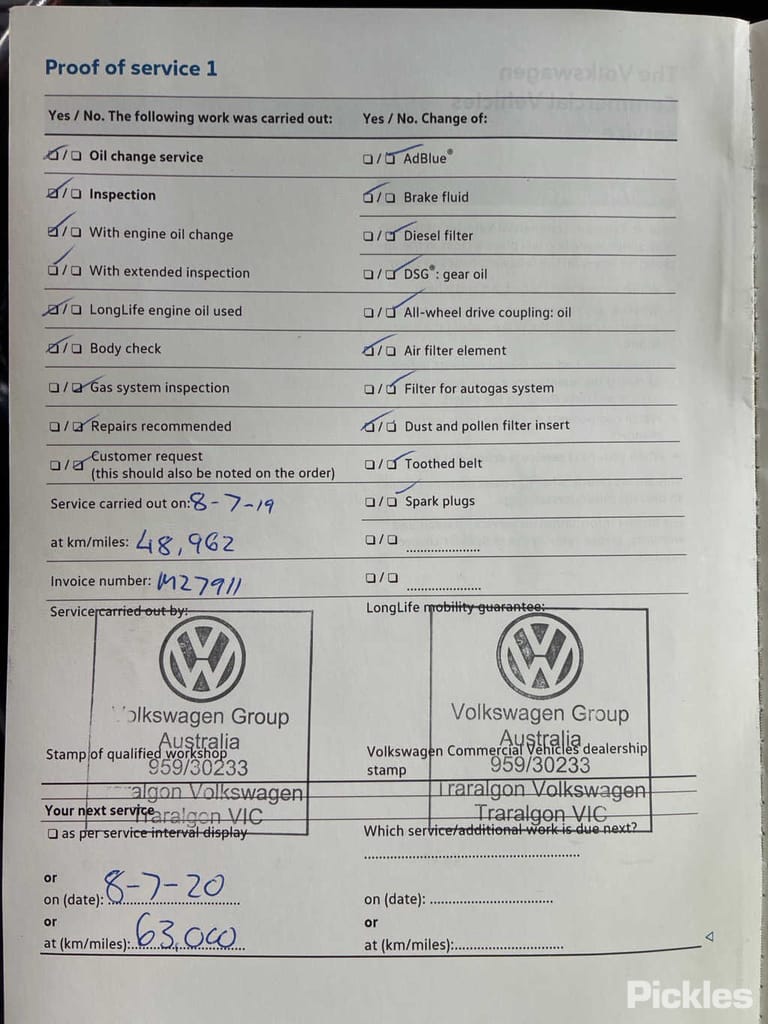 Proof of service 1
Yes / No. The following work was carried out: Yes / No. Change of:
☑/☐ Oil change service ☐/☑ AdBlue®
☑/☐ Inspection ☑/☐ Brake fluid
☑/☐ With engine oil change ☐/☑ Diesel filter
☑/☐ With extended inspection ☐/☑ DSG®: gear oil
☑/☐ LongLife engine oil used ☐/☑ All-wheel drive coupling: oil
☑/☐ Body check ☑/☐ Air filter element
☐/☑ Gas system inspection ☐/☑ Filter for autogas system
☐/☑ Repairs recommended ☑/☐ Dust and pollen filter insert
☐/☑ Customer request ☐/☑ Toothed belt
(this should also be noted on the order)
Service carried out on: 8-7-19 ☐/☑ Spark plugs
at km/miles: 48,962 ☐/☐ ......................
Invoice number: M27911 ☐/☐ ......................
Service carried out by: LongLife mobility guarantee:
Volkswagen Group Volkswagen Group
Australia Australia
Stamp of qualified workshop Volkswagen Commercial Vehicles dealership
stamp
959/30233 959/30233
Traralgon Volkswagen Traralgon Volkswagen
Traralgon VIC Traralgon VIC
Your next service
☐ as per service interval display Which service/additional work is due next?
or
on (date): 8-7-20 on (date): ..............................
or or
at (km/miles): 63,000 at (km/miles):..........................
Pickles